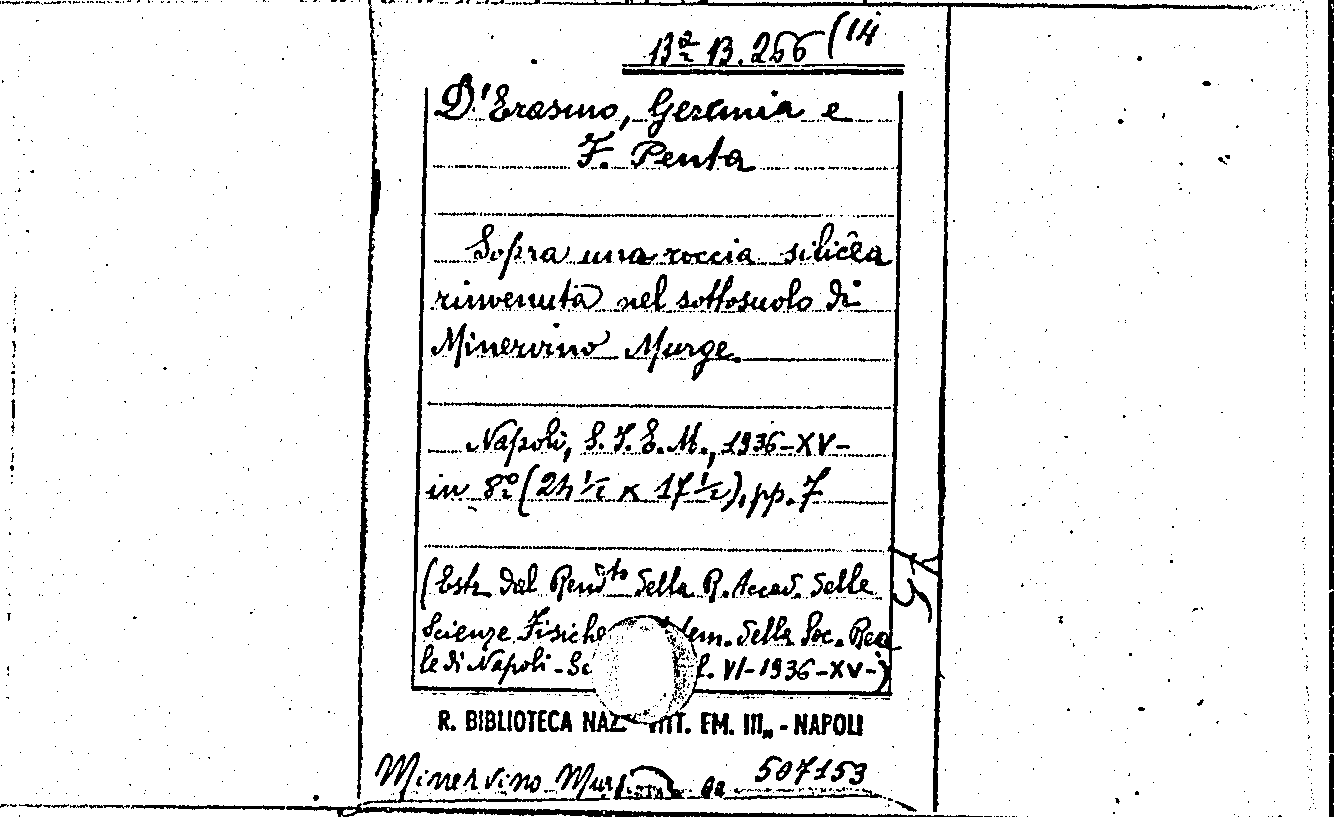 B.ª B. 266 (14
D'Erasmo, Geremia e
F. Penta
Sopra una roccia silicea
rinvenuta nel sottosuolo di
Minervino Murge.
Napoli, S.I.E.M., 1936-XV-
in 8º (24 ½ x 17 ½), pp. 7
(Estr. dal Rend.to della R. Accad. delle
Scienze Fisiche tem. della Soc. Rea
le di Napoli - VI-1936-XV-)
R. BIBLIOTECA NAZ. VITT. EM. III„ - NAPOLI
Minervino 507153